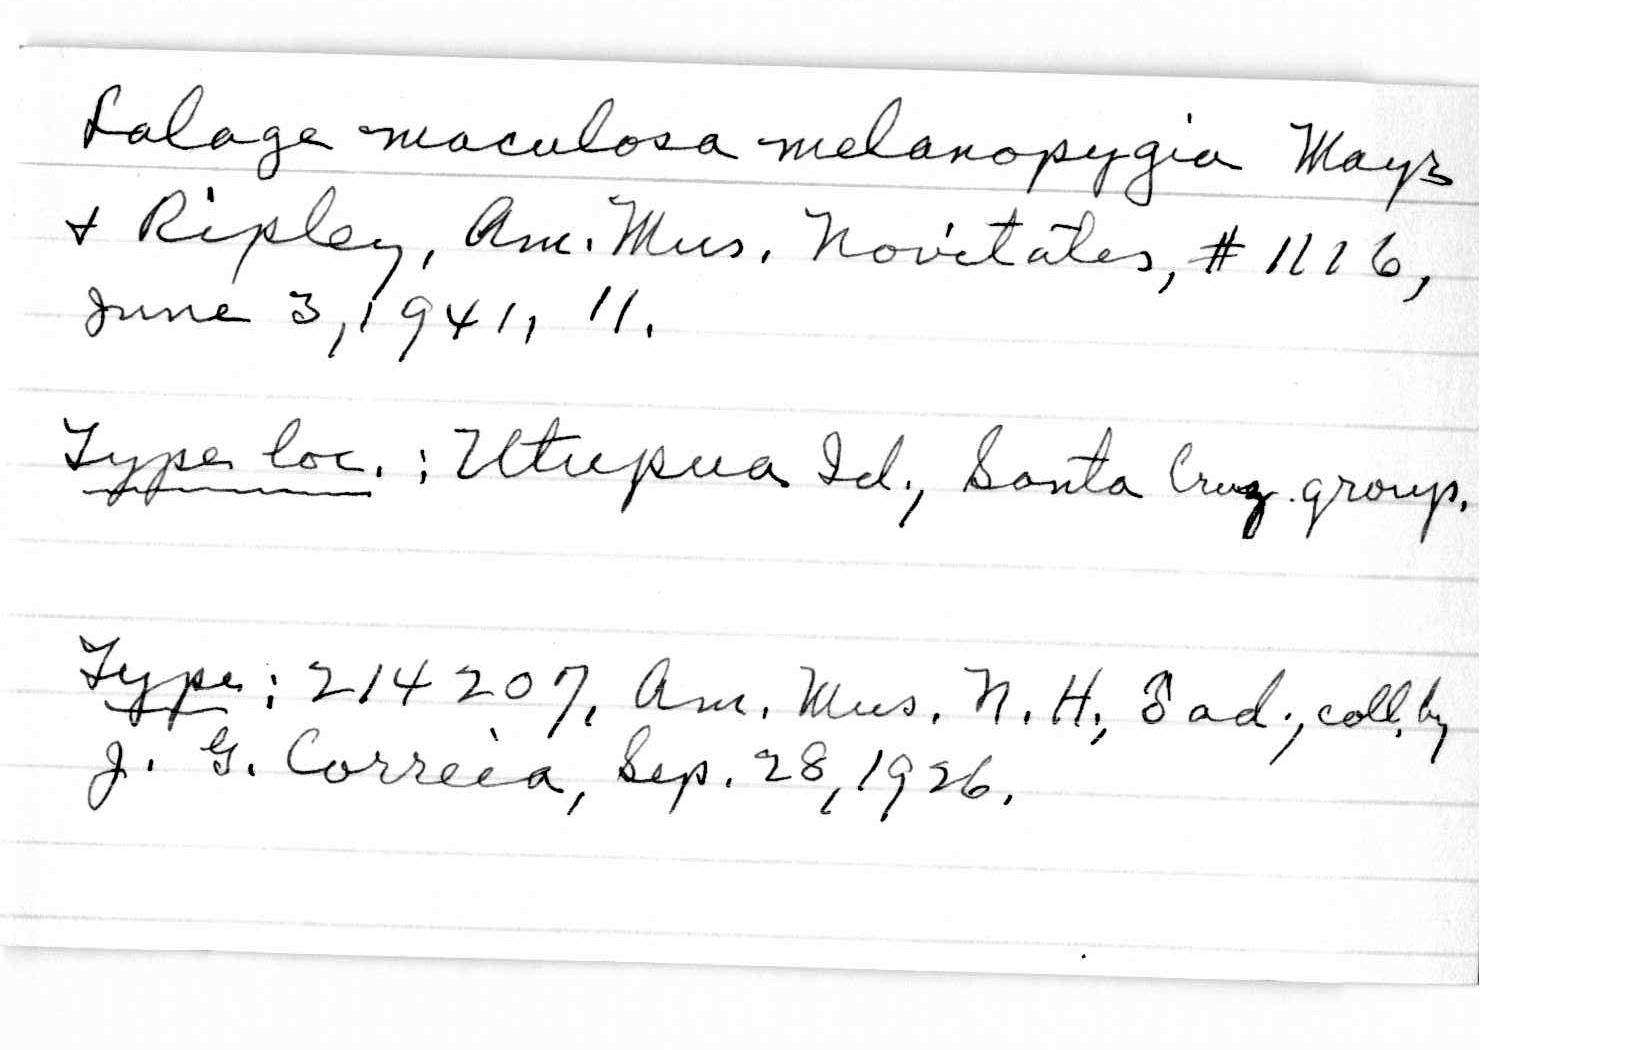 Lalage maculosa melanopygia Mayr
+ Ripley, Am. Mus. Novitates, # 1116,
June 3, 1941, 11.
Type loc. : Utupua Id., Santa Cruz group.
Type : 214207, Am. Mus. N. H., ♂ ad., coll. by
J. G. Correia, Sep. 28, 1926.